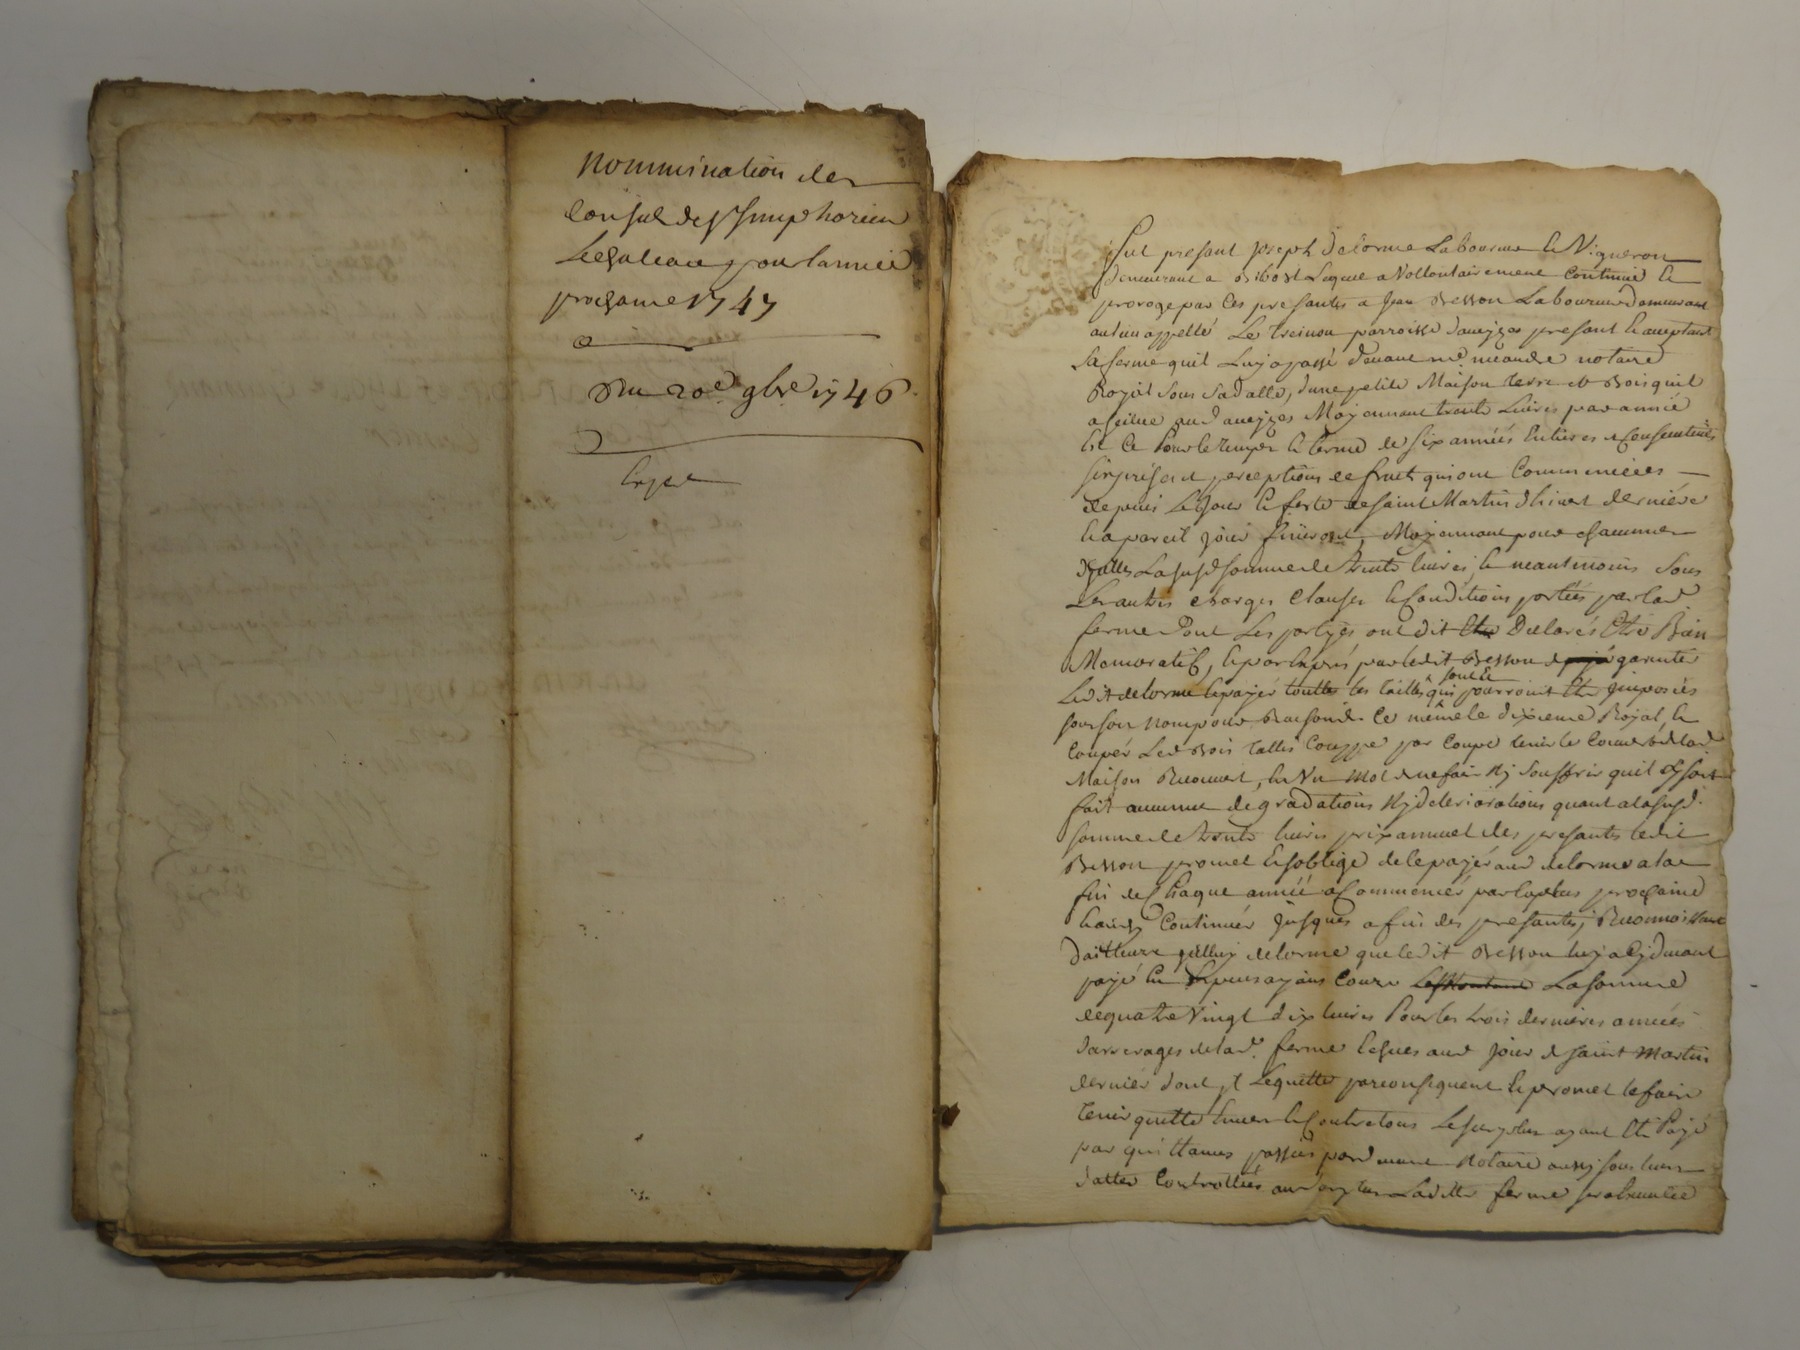 Nommination de
Consul de St Simphorien
Le Chateau pour l'année
prochaine 1747
Du 20e 9bre 1746
Exped
Fut présant Joseph Delorme Laboureur & Vigneron
demeurant a Ribost Lequel a Vollontairement Continué &
proroge par Ces presantes a Jean Besson Laboureur demeurant
au lieu appellé Le parroisse d'aveyzes presant & acceptant
la ferme quil Luy a passé devant me notaire
Royal Sous Sa datte, d'une petite Maison terre et Bois quil
a scitué aud aveyzes Moyennant trente Livres par année
Et Ce Pour le temps & terme de Six années Entieres & Consecutives
prise et perceptions de fruit qui ont Commencées
depuis Le Jour & feste de Saint Martin d'hiver derniére
& a pareil jour finiront, Moyennant pour chacune
d'ycelles La susd somme de trente livres, & neantmoins Sous
Les autres charges Clauses & Conditions portées par lad
ferme Dont Les partyes ont dit Declarés Etre Bien
Memoratif, & par ledit Besson de garentir
Ledit delorme & payer toutte les tailles qui pourroint Etre Jmposées
sous son nom pour Raison de Ce même le dixieme Royal, &
Couper Led Bois tallis Couppe par Coupe tenir le Couvert de lad
Maison Recouvert, En Un Mot de ne faire Ny Souffrir quil y soit
fait aucunne degradations Ny deteriorations quant a la susd.
somme de trente livres prix annuel des presantes ledit
Besson promet & s'oblige de la payer aud delorme a la
fin de Chaque année a Commencer par la prochaine
& ainsy Continuer Jusques a fin des presantes, Reconnoissant
d'ailleurs jcelluy delorme que ledit Besson luy a Cy devant
payé En Especes ayans Cours La somme
de quatre Vingt dix livres Pour les trois dernieres années
d'arrerages de lad. ferme Echues aud jour de saint Martin
dernier dont jl Le quitte par consequent & promet le faire
tenir quitte Envers & Contre tous Le surplus ayant Eté Payé
par quittances passées pard notaire aussy sous leurs
dattes Controllées au Ladite ferme